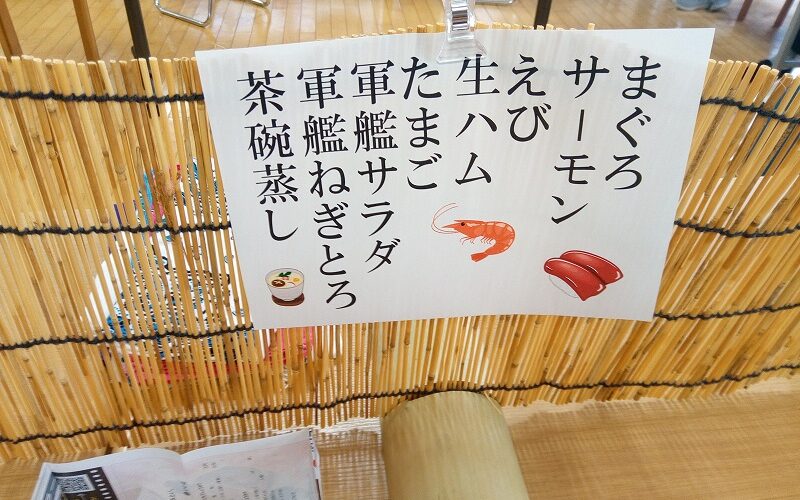 まぐろ
サーモン
えび
生ハム
たまご
軍艦サラダ
軍艦ねぎとろ
茶碗蒸し